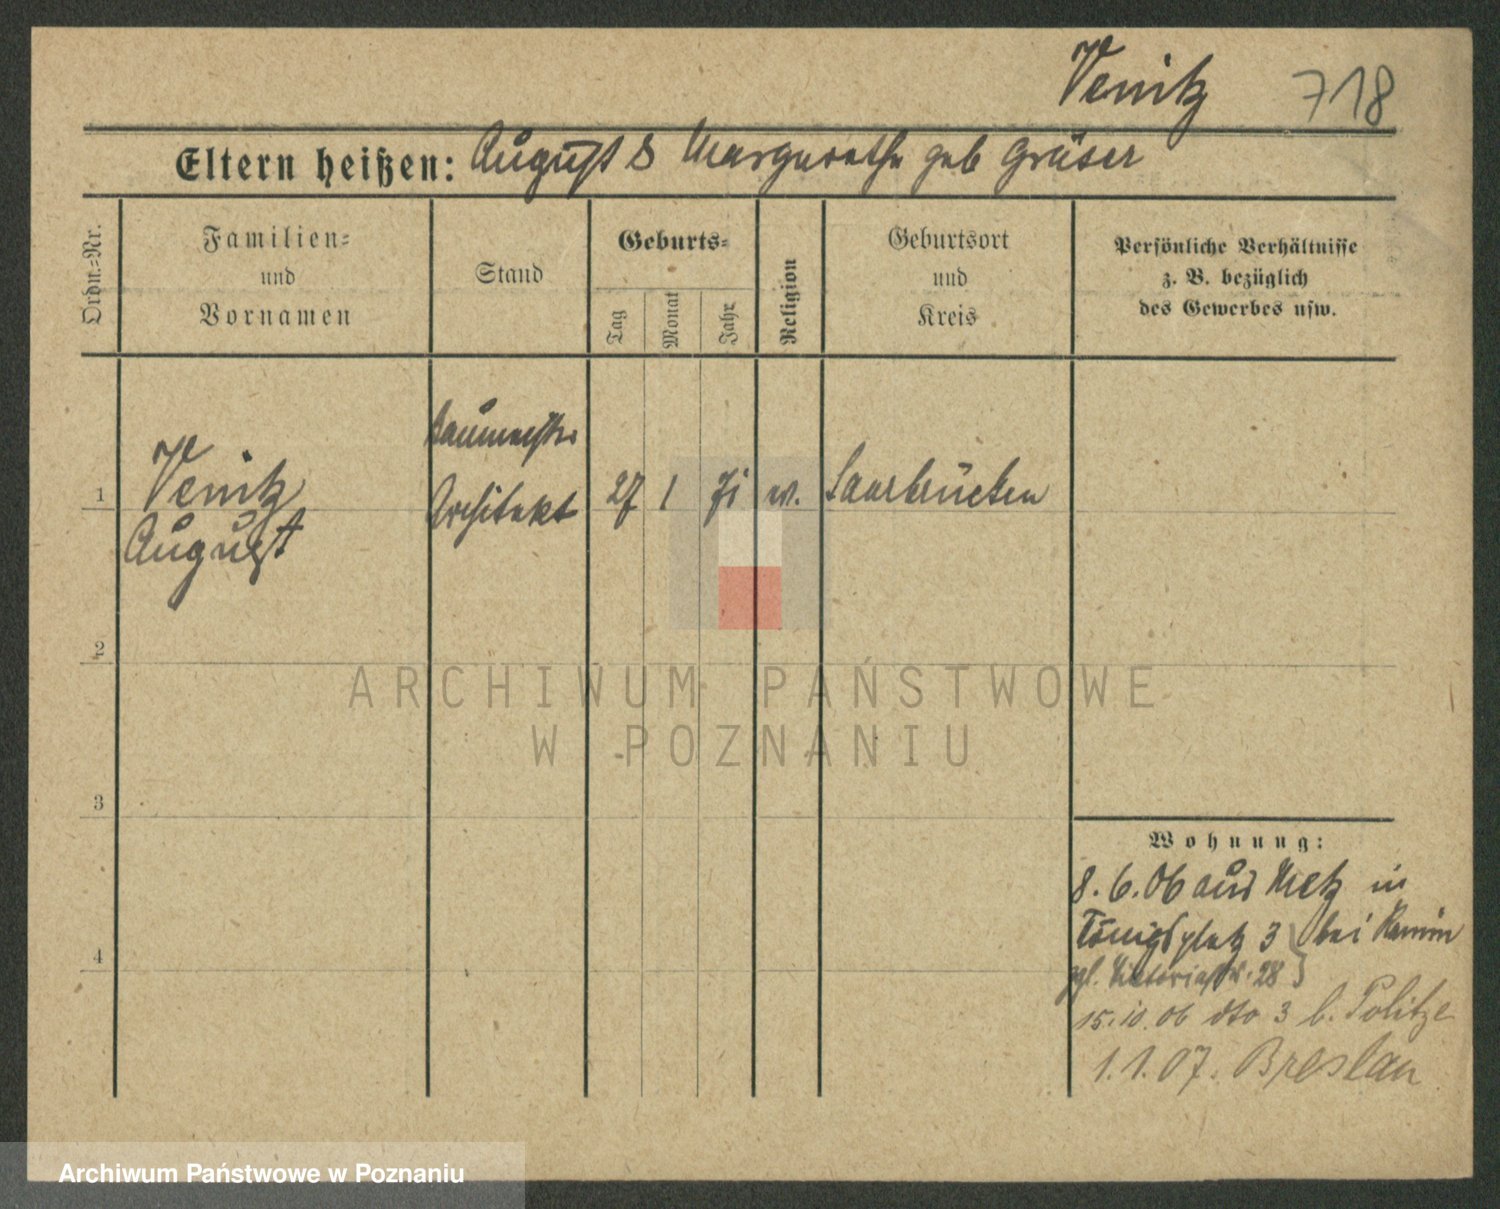 Venitz 718
Eltern heißen: August & Margarethe geb Gräser
Ordn.-Nr.
Familien-
und
Vornamen
Stand
Geburts-
Tag
Monat
Jahr
Religion
Geburtsort
und
Kreis
Persönliche Verhältnisse
z. B. bezüglich
des Gewerbes usw.
1
Venitz
August
Baumeister
Architekt
27 1 71
Saarbrücken
2
3
4
Wohnung:
8.6.06 aus Metz in
Königsplatz 3 bei
Viktoriastr. 28
15.10.06 dto 3 b. Politze
1.1.07. Breslau
ARCHIWUM PAŃSTWOWE
W POZNANIU
Archiwum Państwowe w Poznaniu